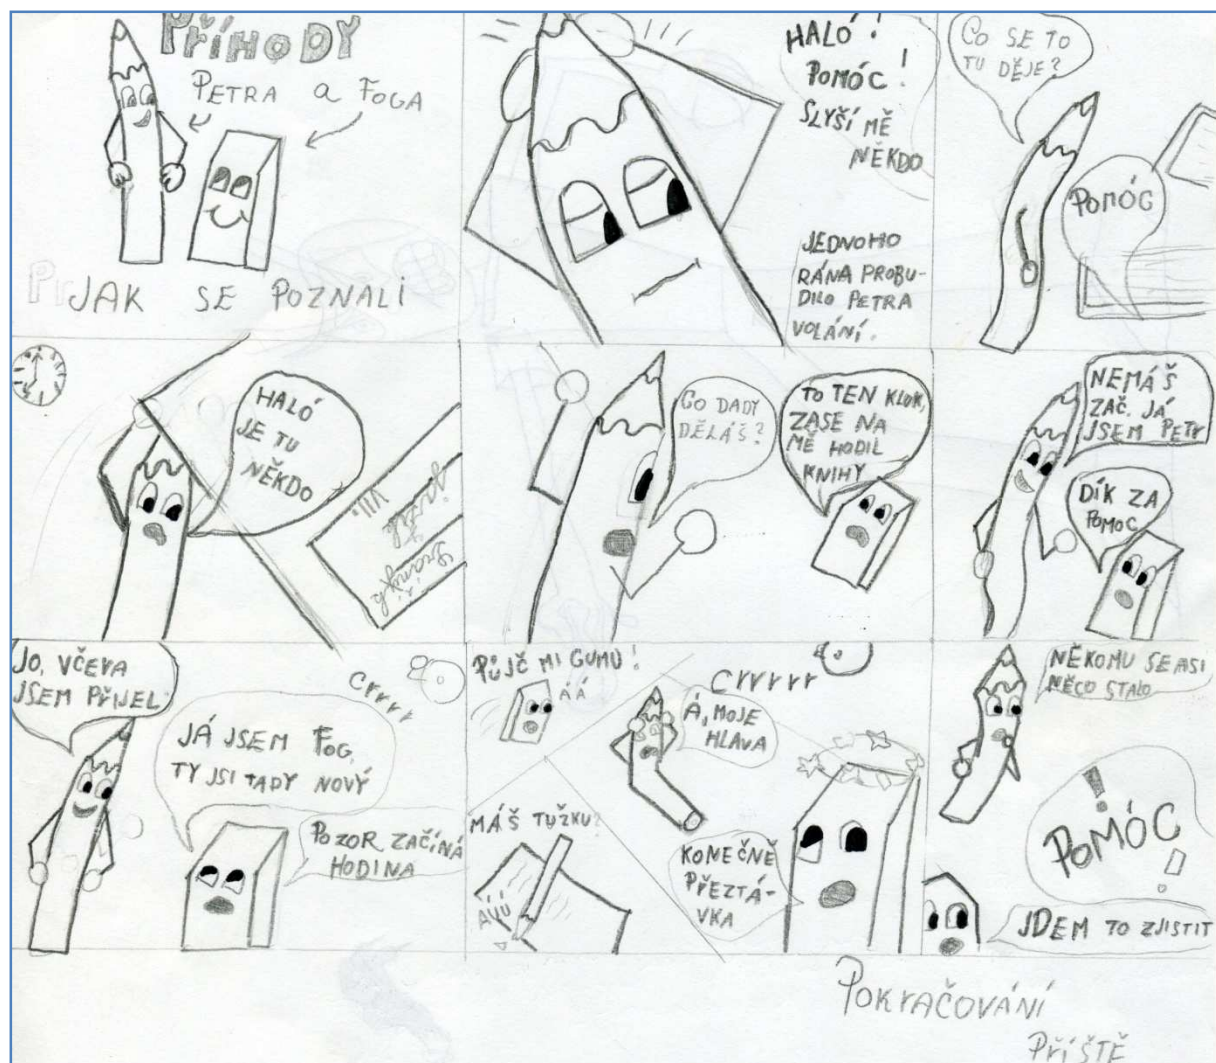 PŘÍHODY
PETRA a FOGA
JAK SE POZNALI
HALÓ!
POMÓC!
SLYŠÍ MĚ
NĚKDO
JEDNOHO
RÁNA PROBU-
DILO PETRA
VOLÁNÍ.
CO SE TO
TU DĚJE?
POMÓC
HALÓ
JE TU
NĚKDO
VII.
CO DADY
DĚLÁŠ?
TO TEN KLUK,
ZASE NA
MĚ HODIL
KNIHY
NEMÁŠ
ZAČ. JÁ
JSEM PETR
DÍK ZA
POMOC
JO, VČERA
JSEM PŘIJEL
Crrrr
JÁ JSEM FOG,
TY JSI TADY NOVÝ
POZOR ZAČÍNÁ
HODINA
PŮJČ MI GUMU!
ÁÁ
Crrrrr
Á, MOJE
HLAVA
MÁŠ TUŽKU?
AÚÚ
KONEČNĚ
PŘEZTÁ-
VKA
NĚKOMU SE ASI
NĚCO STALO
!
POMÓC
!
JDEM TO ZJISTIT
POKRAČOVÁNÍ
PŘÍŠTĚ